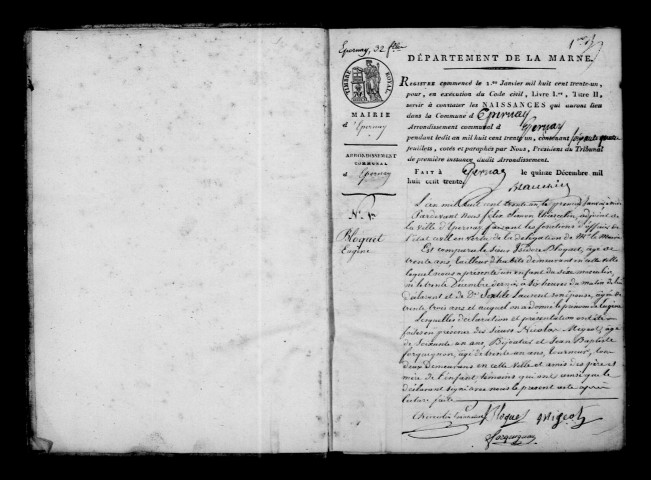 Epernay, 32 f.lles
1.er f.
DÉPARTEMENT DE LA MARNE.
TIMBRE ROYAL
REGISTRE commencé le 1.er Janvier mil huit cent trente-un,
pour, en exécution du Code civil, Livre I.er, Titre II,
servir à constater les NAISSANCES qui auront lieu
dans la Commune d'Epernay
Arrondissement communal d'Epernay
pendant ledit an mil huit cent trente un, contenant
feuillets, cotés et paraphés par Nous, Président du Tribunal
de première instance dudit Arrondissement.
FAIT à Epernay le quinze Décembre mil
huit cent trente.
MAIRIE
d'Epernay
ARRONDISSEMENT
COMMUNAL
d'Epernay
N.o 1.er
Bloquet
Eugène
L'an mil huit cent trente un, le premier Janvier
Pardevant Nous felix Simon adjoint de
la Ville d'Epernay faisant les fonctions d'officier de
l'état civil en vertu de la délégation de M.r le Maire
Est comparu le Sieur Bloquet, âgé de
trente ans, tailleur d'habits demeurant en cette ville
lequel nous a présenté un enfant du sexe masculin,
né le trente Décembre dernier à Six heures du matin de lui
déclarant et de D.e Laurent son épouse, âgée de
trente trois ans et auquel on a donné le prénom d'Eugène
Lesquelles déclaration et présentation ont été
faites en présence des Sieurs Nicolas âgé
de Soixante un ans, Bijoutier et Jean Baptiste
forguignon, âgé de trente un ans, tourneur, tous
deux Demeurans en cette Ville et amis des père et
mère de l'enfant témoins qui ont ainsi que le
déclarant signé avec nous le présent acte après
lecture faite.
Bloquet
forguignon